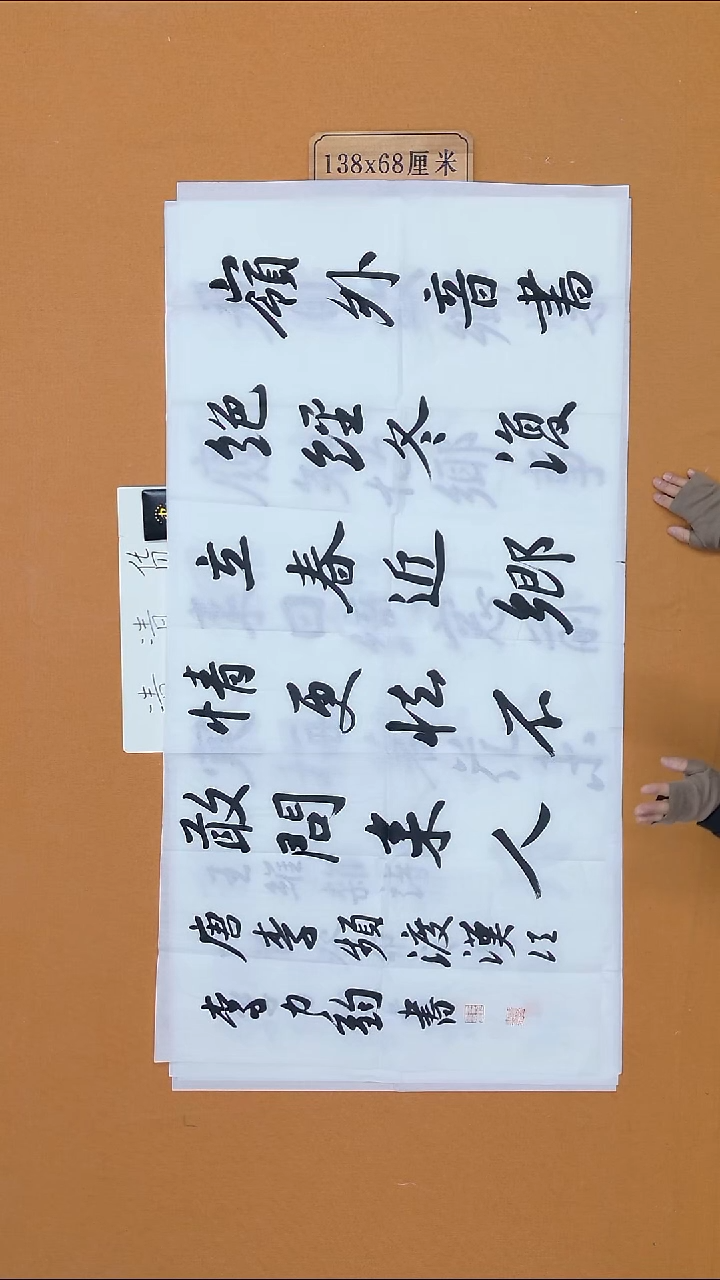 138x68厘米
嶺外音書
絶經冬復
立春近鄉
情更怯不
敢問来人
唐李頻渡漢江
李力鈞書